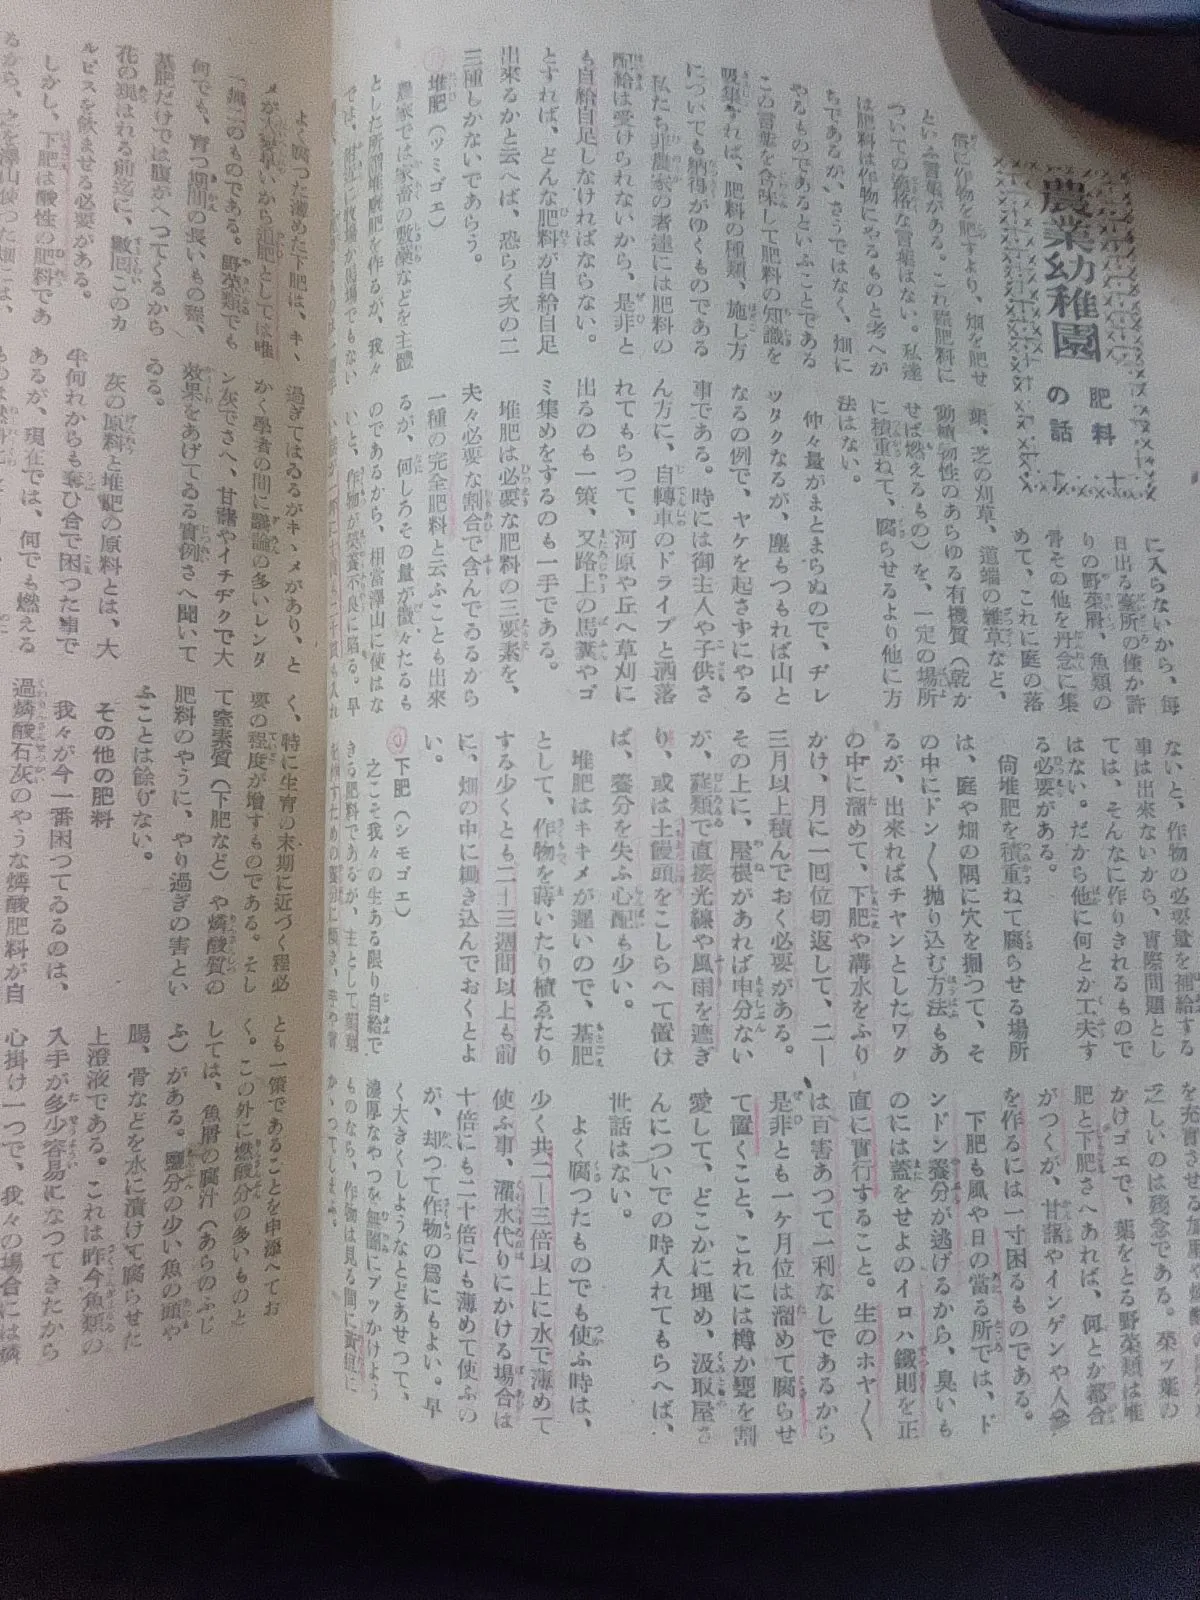 農業幼稚園
肥料の話
俗に作物を肥すより、畑を肥せ
といふ言葉がある。これ程肥料に
ついての適格な言葉はない。私達
は肥料は作物にやるものと考へが
ちであるが、さうではなく、畑に
やるものであるといふことである
この言葉を含味して肥料の知識を
吸集すれば、肥料の種類、施し方
についても納得がゆくものである
私たち非農家の者達には肥料の
配給は受けられないから、是非と
も自給自足しなければならない。
とすれば、どんな肥料が自給自足
出來るかと云へば、恐らく次の二
三種しかないであらう。
堆肥(ツミゴエ)
農家では家畜の敷藁などを主體
とした所謂堆廐肥を作るが、我々
では、附近に牧場か馬場でもない
に入らないから、毎
日出る臺所の僅か許
りの野菜屑、魚類の
骨その他を丹念に集
めて、これに庭の落
葉、芝の刈草、道端の雜草など、
動植物性のあらゆる有機質(乾か
せば燃えるもの)を、一定の場所
に積重ねて、腐らせるより他に方
法はない。
仲々量がまとまらぬので、ヂレ
ッタクなるが、塵もつもれば山と
なるの例で、ヤケを起さずにやる
事である。時には御主人や子供さ
ん方に、自轉車のドライブと洒落
れてもらつて、河原や丘へ草刈に
出るのも一策、又路上の馬糞やゴ
ミ集めをするのも一手である。
堆肥は必要な肥料の三要素を、
夫々必要な割合で含んでゐるから
一種の完全肥料と云ふことも出來
るが、何しろその量が微々たるも
のであるから、相當澤山に使はな
いと、作物が榮養不良に陷る。早
ないと、作物の必要量を補給する
事は出來ないから、實際問題とし
ては、そんなに作りきれるもので
はない。だから他に何とか工夫す
る必要がある。
尙堆肥を積重ねて腐らせる場所
は、庭や畑の隅に穴を掘つて、そ
の中にドン〳〵抛り込む方法もあ
るが、出來ればチャンとしたワク
の中に溜めて、下肥や溝水をふり
かけ、月に一回位切返して、二—
三月以上積んでおく必要がある。
その上に、屋根があれば申分ない
が、蓆類で直接光線や風雨を遮ぎ
り、或は土饅頭をこしらへて置け
ば、養分を失ふ心配も少い。
堆肥はキキメが遲いので、基肥
として、作物を蒔いたり植ゑたり
する少くとも二—三週間以上も前
に、畑の中に鋤き込んでおくとよ
い。
下肥(シモゴエ)
之こそ我々の生ある限り自給で
きる肥料であるが、主として
乏しいのは殘念である。菜ッ葉の
かけゴエで、葉をとる野菜類は堆
肥と下肥さへあれば、何とか都合
がつくが、甘藷やインゲンや人參
を作るには一寸困るものである。
下肥も風や日の當る所では、ド
ンドン養分が逃げるから、臭いも
のには蓋をせよのイロハ鐵則を正
直に實行すること。生のホヤ〳〵
は百害あつて一利なしであるから
是非とも一ケ月位は溜めて腐らせ
て置くこと、これには樽か甕を割
愛して、どこかに埋め、汲取屋さ
んについでの時入れてもらへば、
世話はない。
よく腐つたものでも使ふ時は、
少く共二—三倍以上に水で薄めて
使ふ事、灌水代りにかける場合は
十倍にも二十倍にも薄めて使ふの
が、却つて作物の爲にもよい。早
く大きくしようなどとあせつて、
濃厚なやつを無闇にブッかけよう
ものなら、作物は見る間に
よく腐つた薄めた下肥は、キ、
メが大變早いから追肥としては唯
一無二のものである。野菜類でも
何でも、育つ期間の長いもの程、
基肥だけでは腹がへつてくるから
花の現はれる前迄に、數回このカ
ルピスを飲ませる必要がある。
しかし、下肥は酸性の肥料であ
るから、之を澤山使つた畑には、
過ぎてはゐるがキ、メがあり、と
かく學者の間に議論の多いレンダ
ン灰でさへ、甘藷やイチヂクで大
效果をあげてゐる實例さへ聞いて
ゐる。
灰の原料と堆肥の原料とは、大
半何れからも奪ひ合で困つた事で
あるが、現在では、何でも燃える
く、特に生育の末期に近づく程必
要の程度が增すものである。そし
て窒素質(下肥など)や燐酸質の
肥料のやうに、やり過ぎの害とい
ふことは餘りない。
その他の肥料
我々が今一番困つてゐるのは、
過燐酸石灰のやうな燐酸肥料が自
とも一策であることを申添へてお
く。この外に燐酸分の多いものと
しては、魚屑の腐汁(あらのふじ
ふ)がある。鹽分の少い魚の頭や
腸、骨などを水に漬けて腐らせた
上澄液である。これは昨今魚類の
入手が多少容易になつてきたから
心掛け一つで、我々の場合には燐